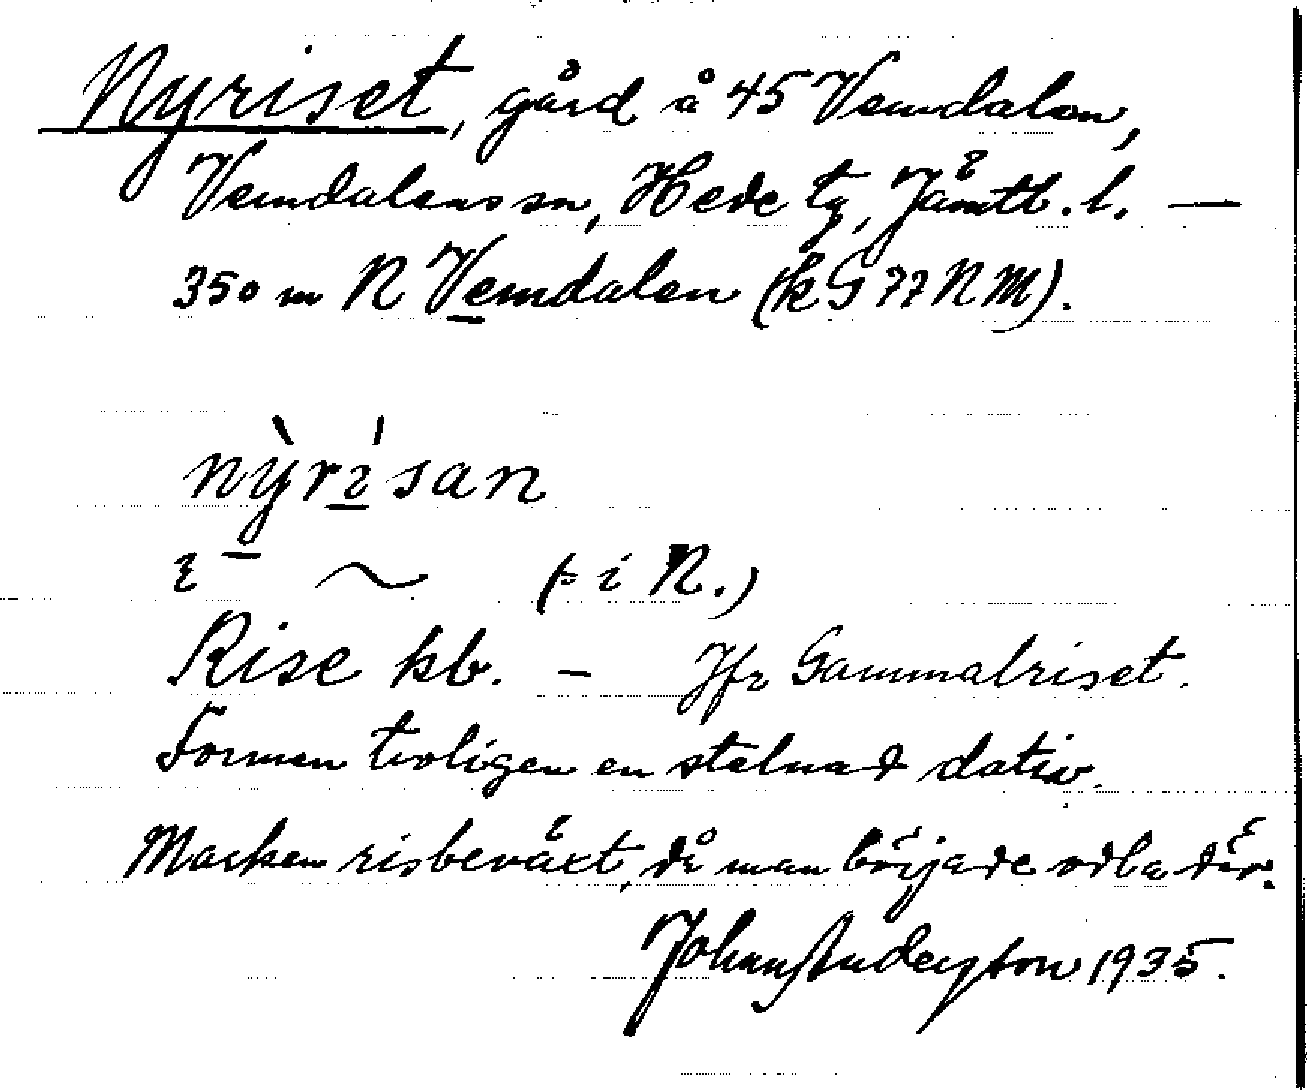 Nyriset, gård å 45 Vemdalen,
Vemdalens sn, Hede tg, Jämtl. l. —
350 m N Vemdalen (k G 77 N M).
nỳrísan
i ~ (i N.)
Rise kb. – Jfr Gammalriset.
Formen troligen en stelnad dativ.
Marken risbeväxt, då man började odla där.
Johan Anderson 1935.